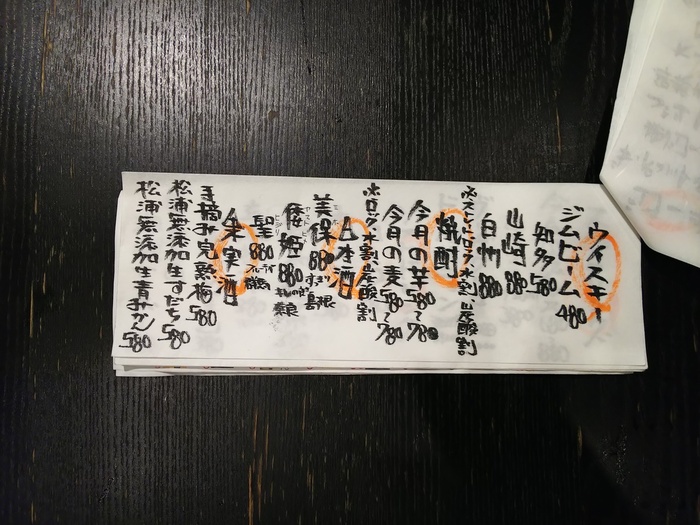 ウイスキー
ジムビーム 480
知多 580
山崎 880
白州 880
※ストレート・ロック・水割・炭酸割
焼酎
今月の芋 580〜780
今月の麦 580〜780
※ロック・水割・炭酸割
日本酒
美保 880 島根
倭姫 880
聖 880 フルーティ 群馬
果実酒
手摘み完熟梅 580
松浦無添加生すだち 580
松浦無添加生青みかん 580